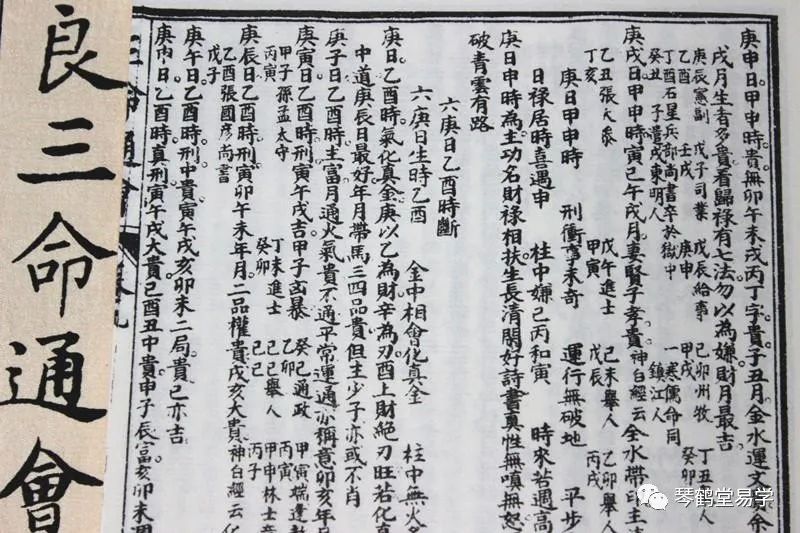 庚申日甲申時貴無卯午未戌丙丁字貴子丑月金水運文
戌月生者多貴看歸祿有七法勿以為嫌財月最吉
庚辰憲副　戊子司業　戊辰給事　己卯州牧　丁丑
乙酉　壬戌　庚申　甲戌　癸卯
丁酉石星兵部尚書卒於獄中　一寒儒命同
癸丑　子遣戍東明人　鎮江人
庚戌日甲申時寅己午戌月妻賢子孝貴神白經云金水帶印主
乙丑張大參　戊午進士　己未舉人　乙卯舉人
丁亥　甲寅　戊辰　丙戌
庚日甲申時　刑衝等未奇　運行無破地　平步
日祿居時喜遇申　柱中嫌己丙和寅　時來若遇高
庚日申時為主功名財祿相扶生長清閑好詩書真性無嗔無恕
破青雲有路
六庚日乙酉時斷
六庚日生時乙酉　金中相會化真金　柱中無火
庚日乙酉時氣化真金庚以乙為財辛為刃酉上財絕刃旺若化真
中道庚辰日最好年月帶馬三四品貴但主少子亦或不肖
庚子日乙酉時主富月通火氣貴不通平常運通亦稱意卯亥年
庚寅日乙酉時刑寅午戌吉甲子凶暴
甲子　孫孟太守　丁未進士　癸巳通政　甲寅
丙寅　癸卯　乙卯　丙寅
庚辰日乙酉時刑寅卯午未年月二品權貴戌亥大貴神白經云化
乙酉張國彥尚書　己巳舉人　甲申林士
戊子　己巳　丙子
庚午日乙酉時刑中貴寅午戌亥卯未二局貴己亦吉
庚申日乙酉時真刑寅午戌大貴己酉丑中貴申子辰富亥卯未
三命通會
良三命通會
琴鹤堂易学